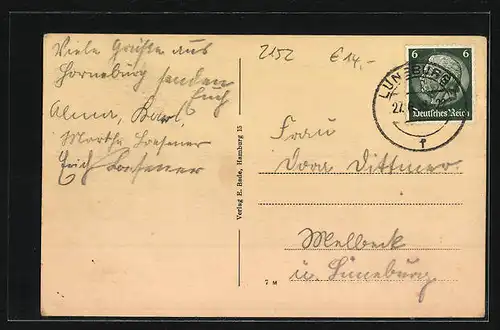 Viele Grüße aus
Horneburg senden
Euch
Alma, Karl,
Martha Loesener
Erich Loesener
2152 €14,-
Verlag E. Rade, Hamburg 13
7 M
6 6
Deutsches Reich
LÜNEBURG
27.
f
Frau
Dora Dittmer
Melbeck
u. Lüneburg